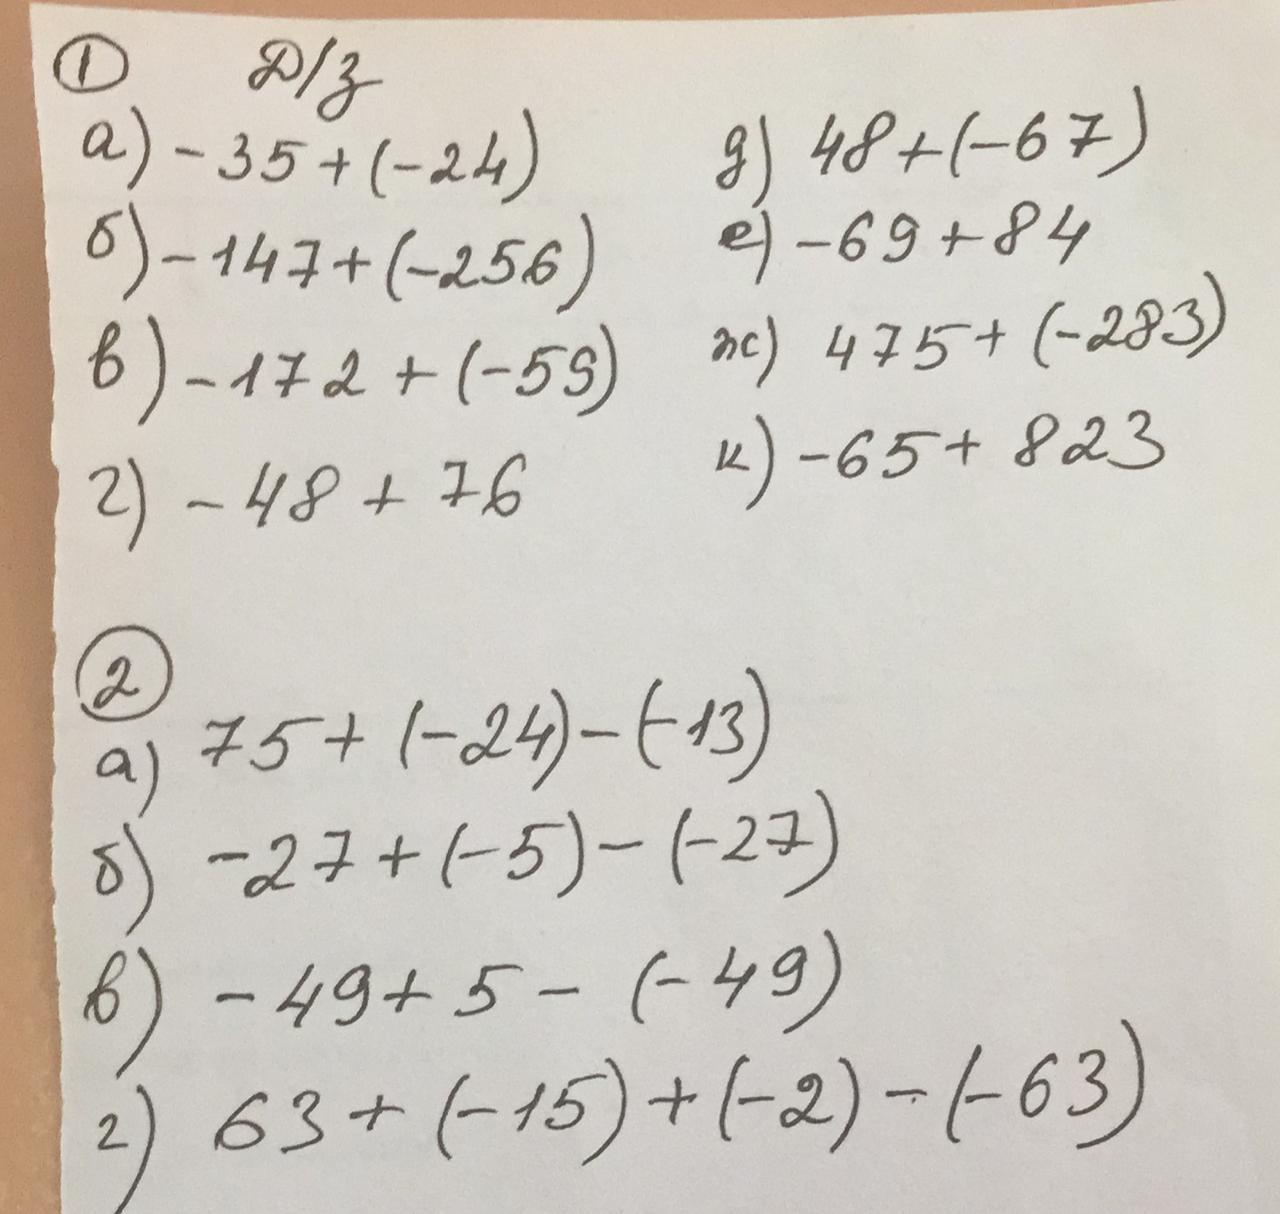 ① Д/з
а) -35+(-24)
б) -147+(-256)
в) -172+(-59)
г) -48+76
д) 48+(-67)
е) -69+84
ж) 475+(-283)
к) -65+823
②
а) 75+(-24)-(-13)
б) -27+(-5)-(-27)
в) -49+5-(-49)
г) 63+(-15)+(-2)-(-63)